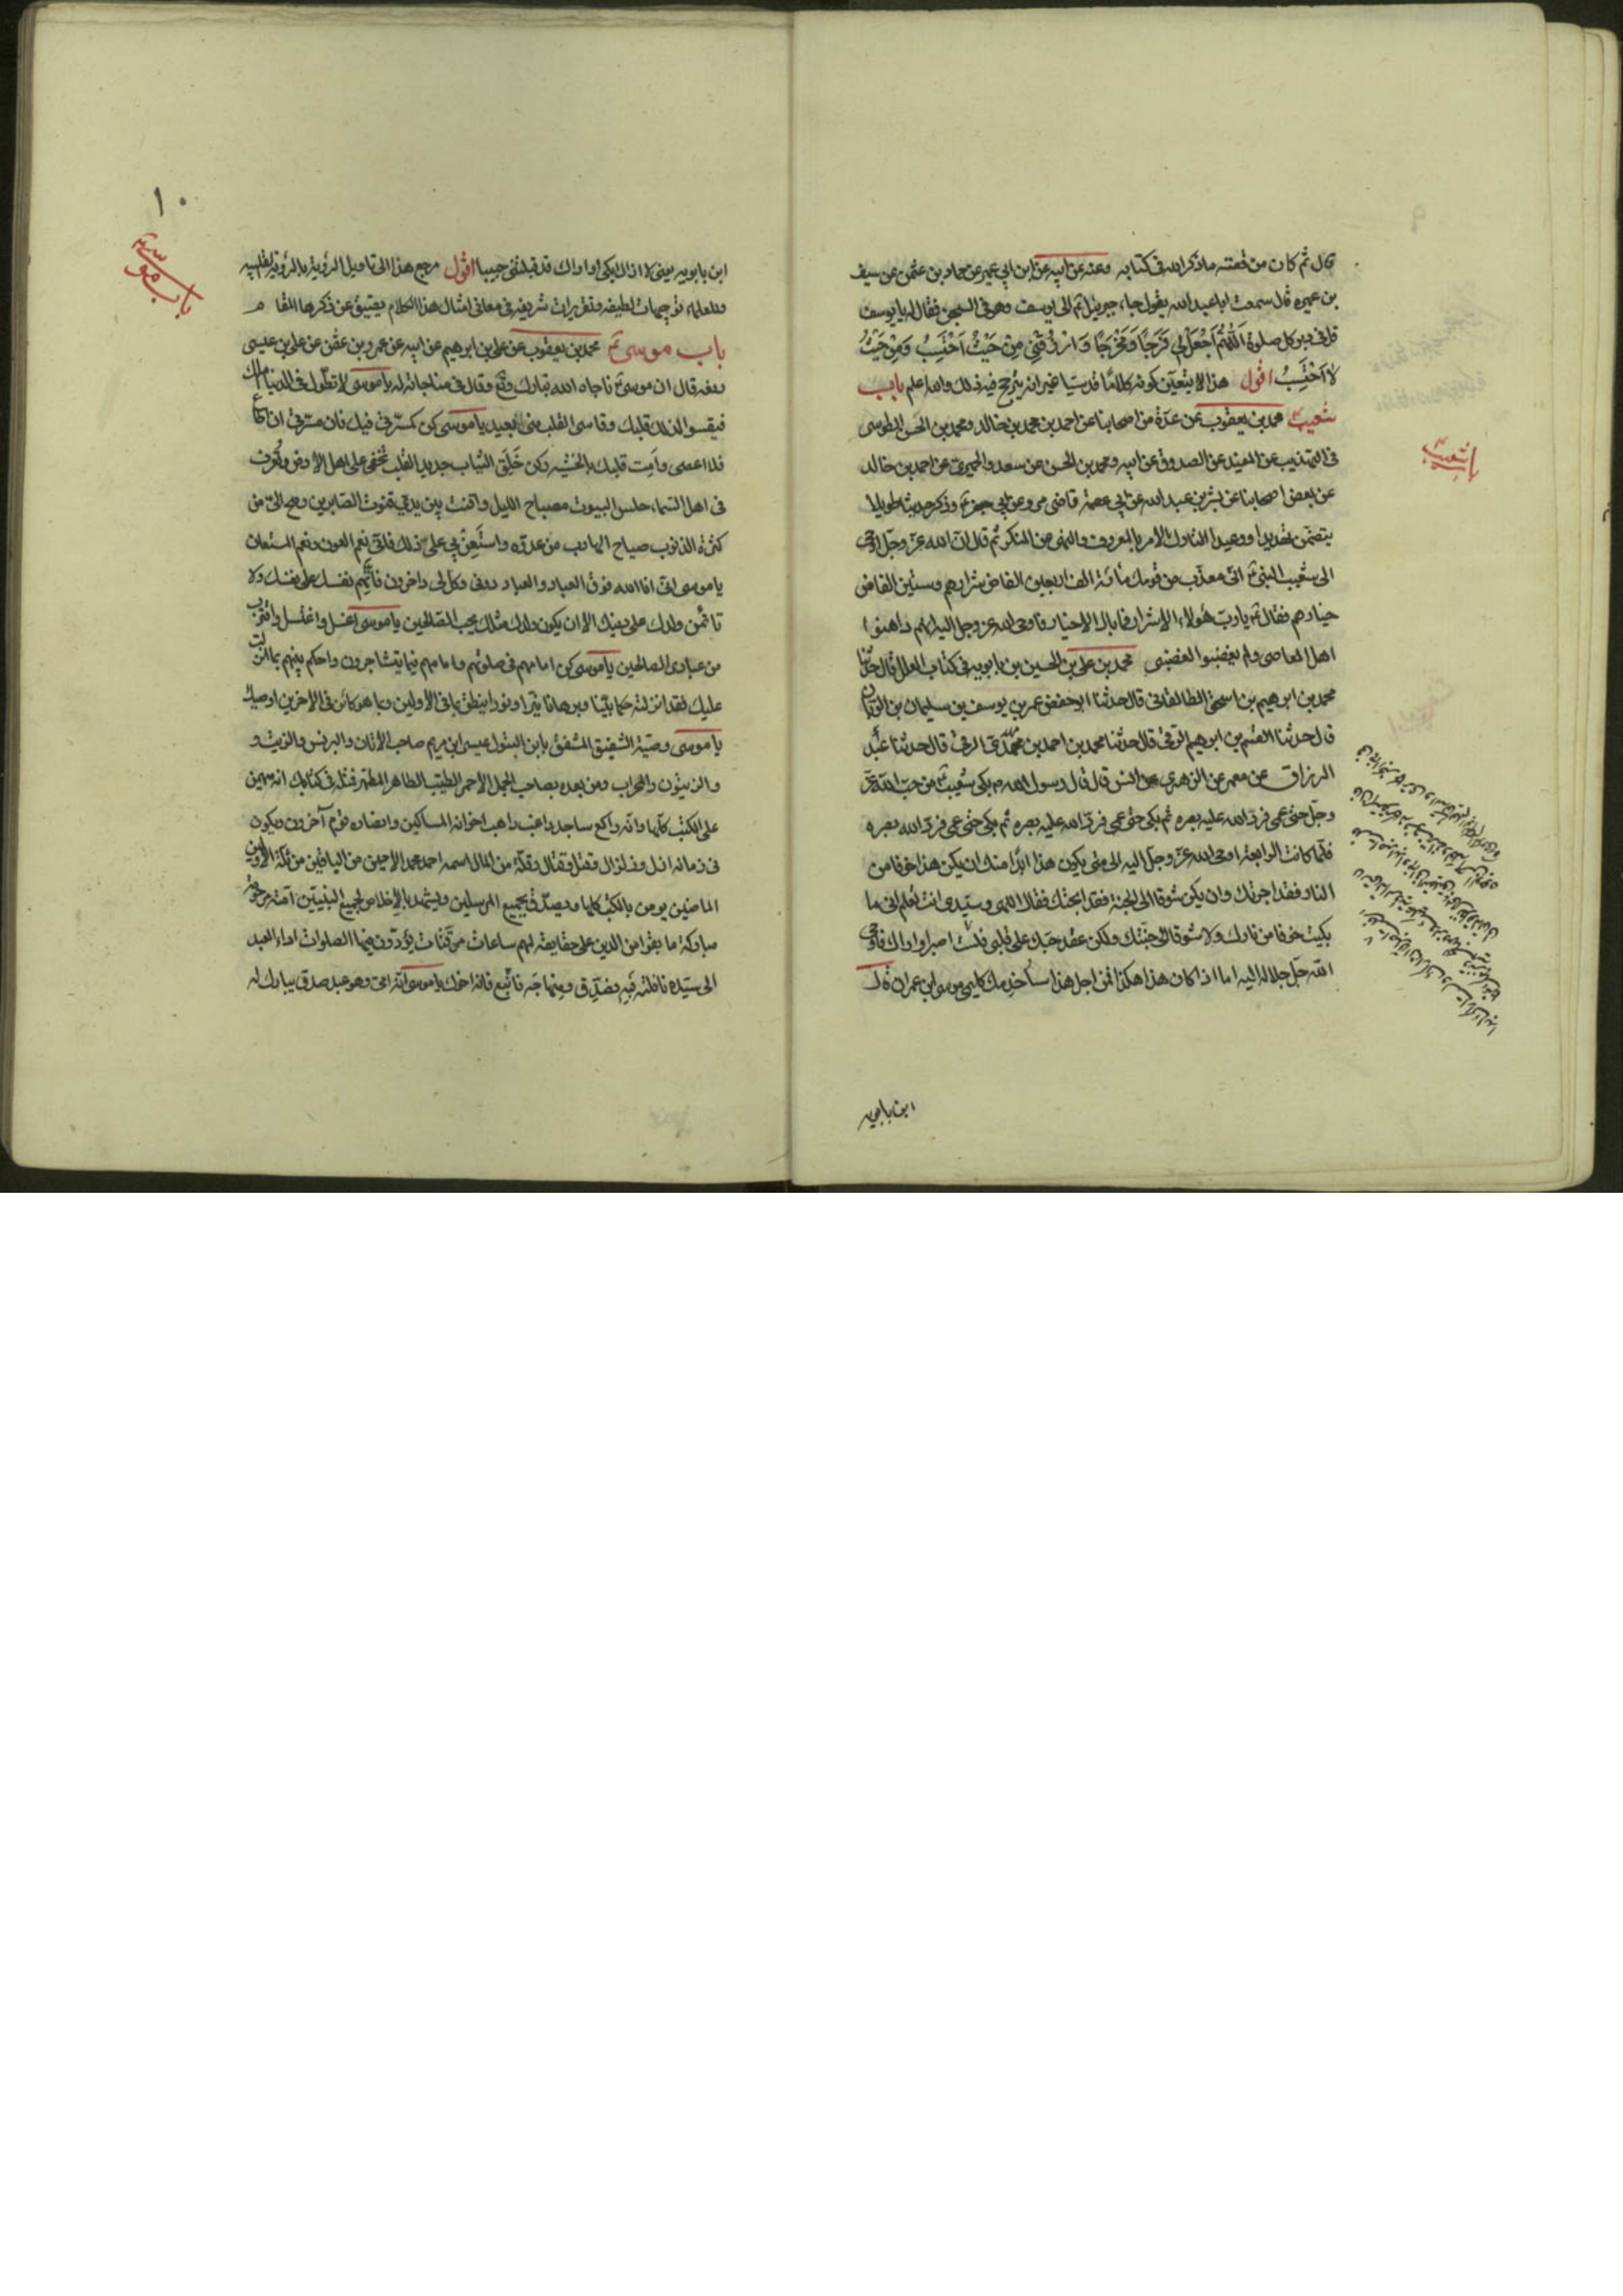 قال ثم كان من قصته ما ذكر الله فى كتابه وعنه عن ابيه عن ابن ابى عمير عن حماد بن عثمن عن سيف
بن عميره قال سمعت ابا عبد الله يقول جاء جبريل ع الى يوسف وهو فى السجن فقال له يا يوسف
قل فى دبر كل صلوة اَللّهُمَّ اجْعَلْ لى فَرَجًا وَمَخْرَجًا وَارْزُقْنِى مِنْ حَيْثُ اَحْتَسِبُ وَمِنْ حَيْثُ
لا اَحْتَسِبُ اقول هذا لا يتعين كونه كلامًا قدسيا غير انه يترجح فيه ذلك والله اعلم باب
شعيب ع محمد بن يعقوب عن عدة من اصحابنا عن احمد بن محمد بن خالد ومحمد بن الحسن الطوسى
فى التهذيب عن المفيد عن الصدوق عن ابيه ومحمد بن الحسن عن سعد والحميرى عن احمد بن خالد
عن بعض اصحابنا عن بشر بن عبد الله عن ابى عصمة قاضى مرو عن ابى جعفر ع وذكر حديثا طويلا
يتضمن تهديدا ووعيدا لتارك الامر بالمعروف والنهى عن المنكر ثم قال ان الله عز وجل اوحى
الى شعيب النبى ع انى معذب من قومك مائة الف اربعين الفا من شرارهم وستين الفا من
خيارهم فقال ع يا رب هؤلاء الاشرار فما بال الاخيار فاوحى الله عز وجل اليه انهم داهنوا
اهل المعاصى ولم يغضبوا لغضبى محمد بن على بن الحسين بن بابويه فى كتاب العلل قال حدثنا
محمد بن ابرهيم بن اسحق الطالقانى قال حدثنا ابو حفص عمر بن يوسف بن سليمان بن الريان
قال حدثنا القسم بن ابرهيم الرقى قال حدثنا محمد بن احمد بن مهدى الرقى قال حدثنا عبد
الرزاق عن معمر عن الزهرى عن انس قال قال رسول الله ص بكى شعيب ع من حب الله عز
وجل حتى عمى فرد الله عليه بصره ثم بكى حتى عمى فرد الله عليه بصره ثم بكى حتى عمى فرد الله بصره
فلما كانت الرابعة اوحى الله عز وجل اليه الى متى يكون هذا ابدًا منك ان يكن هذا خوفا من
النار فقد اجرتك وان يكن شوقا الى الجنة فقد ابحتك فقال الهى وسيدى انت تعلم انى ما
بكيت خوفا من نارك ولا شوقا الى جنتك ولكن عقد حبك على قلبى فلست اصبر او اراك فاوحى
الله جل جلاله اليه اما اذا كان هذا هكذا فمن اجل هذا سأخدمك كليمى موسى ابن عمران قال
ابن بابويه
باب شعيب ع
١٠
باب موسى ع
ابن بابويه يعنى لا ازال ابكى او اراك قد قبلتنى حبيبا اقول مرجع هذا الى تاويل الرؤية بالرؤية القلبيه
وللعلماء توجيهات لطيفه وتقريرات شريفه فى معانى امثال هذا الكلام يضيق عن ذكرها المقام
باب موسى ع محمد بن يعقوب عن على بن ابرهيم عن ابيه عن عمرو بن عثمن عن على بن عيسى
رفعه قال ان موسى ع ناجاه الله تبارك وتع فقال فى مناجاته له يا موسى لا تطول فى الدنيا املك
فيقسو لذلك قلبك وقاسى القلب منى بعيد يا موسى كن كمسرتى فيك فان مسرتى ان اطاع
فلا اعصى واَمِت قلبك بالخشيه وكن خَلَق الثياب جديد القلب تخفى على اهل الارض وتُعرف
فى اهل السماء حلس البيوت مصباح الليل واقنت بين يدى قنوت الصابرين وصح الىّ من
كثرة الذنوب صياح الهارب من عدوه واستَعِن بى على ذلك فانى نعم العون ونعم المستعان
يا موسى انى انا الله فوق العباد والعباد دونى وكل لى داخرون فاتهم نفسك على نفسك ولا
تاتمن ولدك على دينك الا ان يكون ولدك مثلك يحب الصالحين يا موسى اغسل واغتسل واقترب
من عبادى الصالحين يا موسى كن امامهم فى صلوتهم وامامهم فيما يتشاجرون واحكم بينهم بما انزلت
عليك فقد انزلته حكما بينا وبرهانا نيّرا ونورا ينطق بما فى الاولين وبما هو كائن فى الاخرين اوصيك
يا موسى وصية الشفيق المشفق بابن البتول عيسى ابن مريم صاحب الاتان والبرنس والزيت و
والزيتون والمحراب ومن بعده بصاحب الجمل الاحمر الطيب الطاهر المطهر فمثله فى كتابك انه مهيمن
على الكتب كلها وانه راكع ساجد راغب راهب اخوانه المساكين وانصاره قوم آخرون ويكون
فى زمانه ازل وزلزال وقتل وقتال وقلة من المال اسمه احمد محمد الامين من الباقين من ثلة الاولين
الماضين يومن بالكتب كلها ويصدّق بجميع المرسلين ويشهد بالاِخلاص لجميع النبيين امته مرحومة
مباركة ما بقوا من الدين على حقايقه لهم ساعات موقتات يؤدون فيها الصلوات اداء العبد
الى سيده نافلته فبه فصدِّق ومنهاجَه فاتّبع فانه اخوك يا موسى انه امى وهو عبد صدق يبارك له